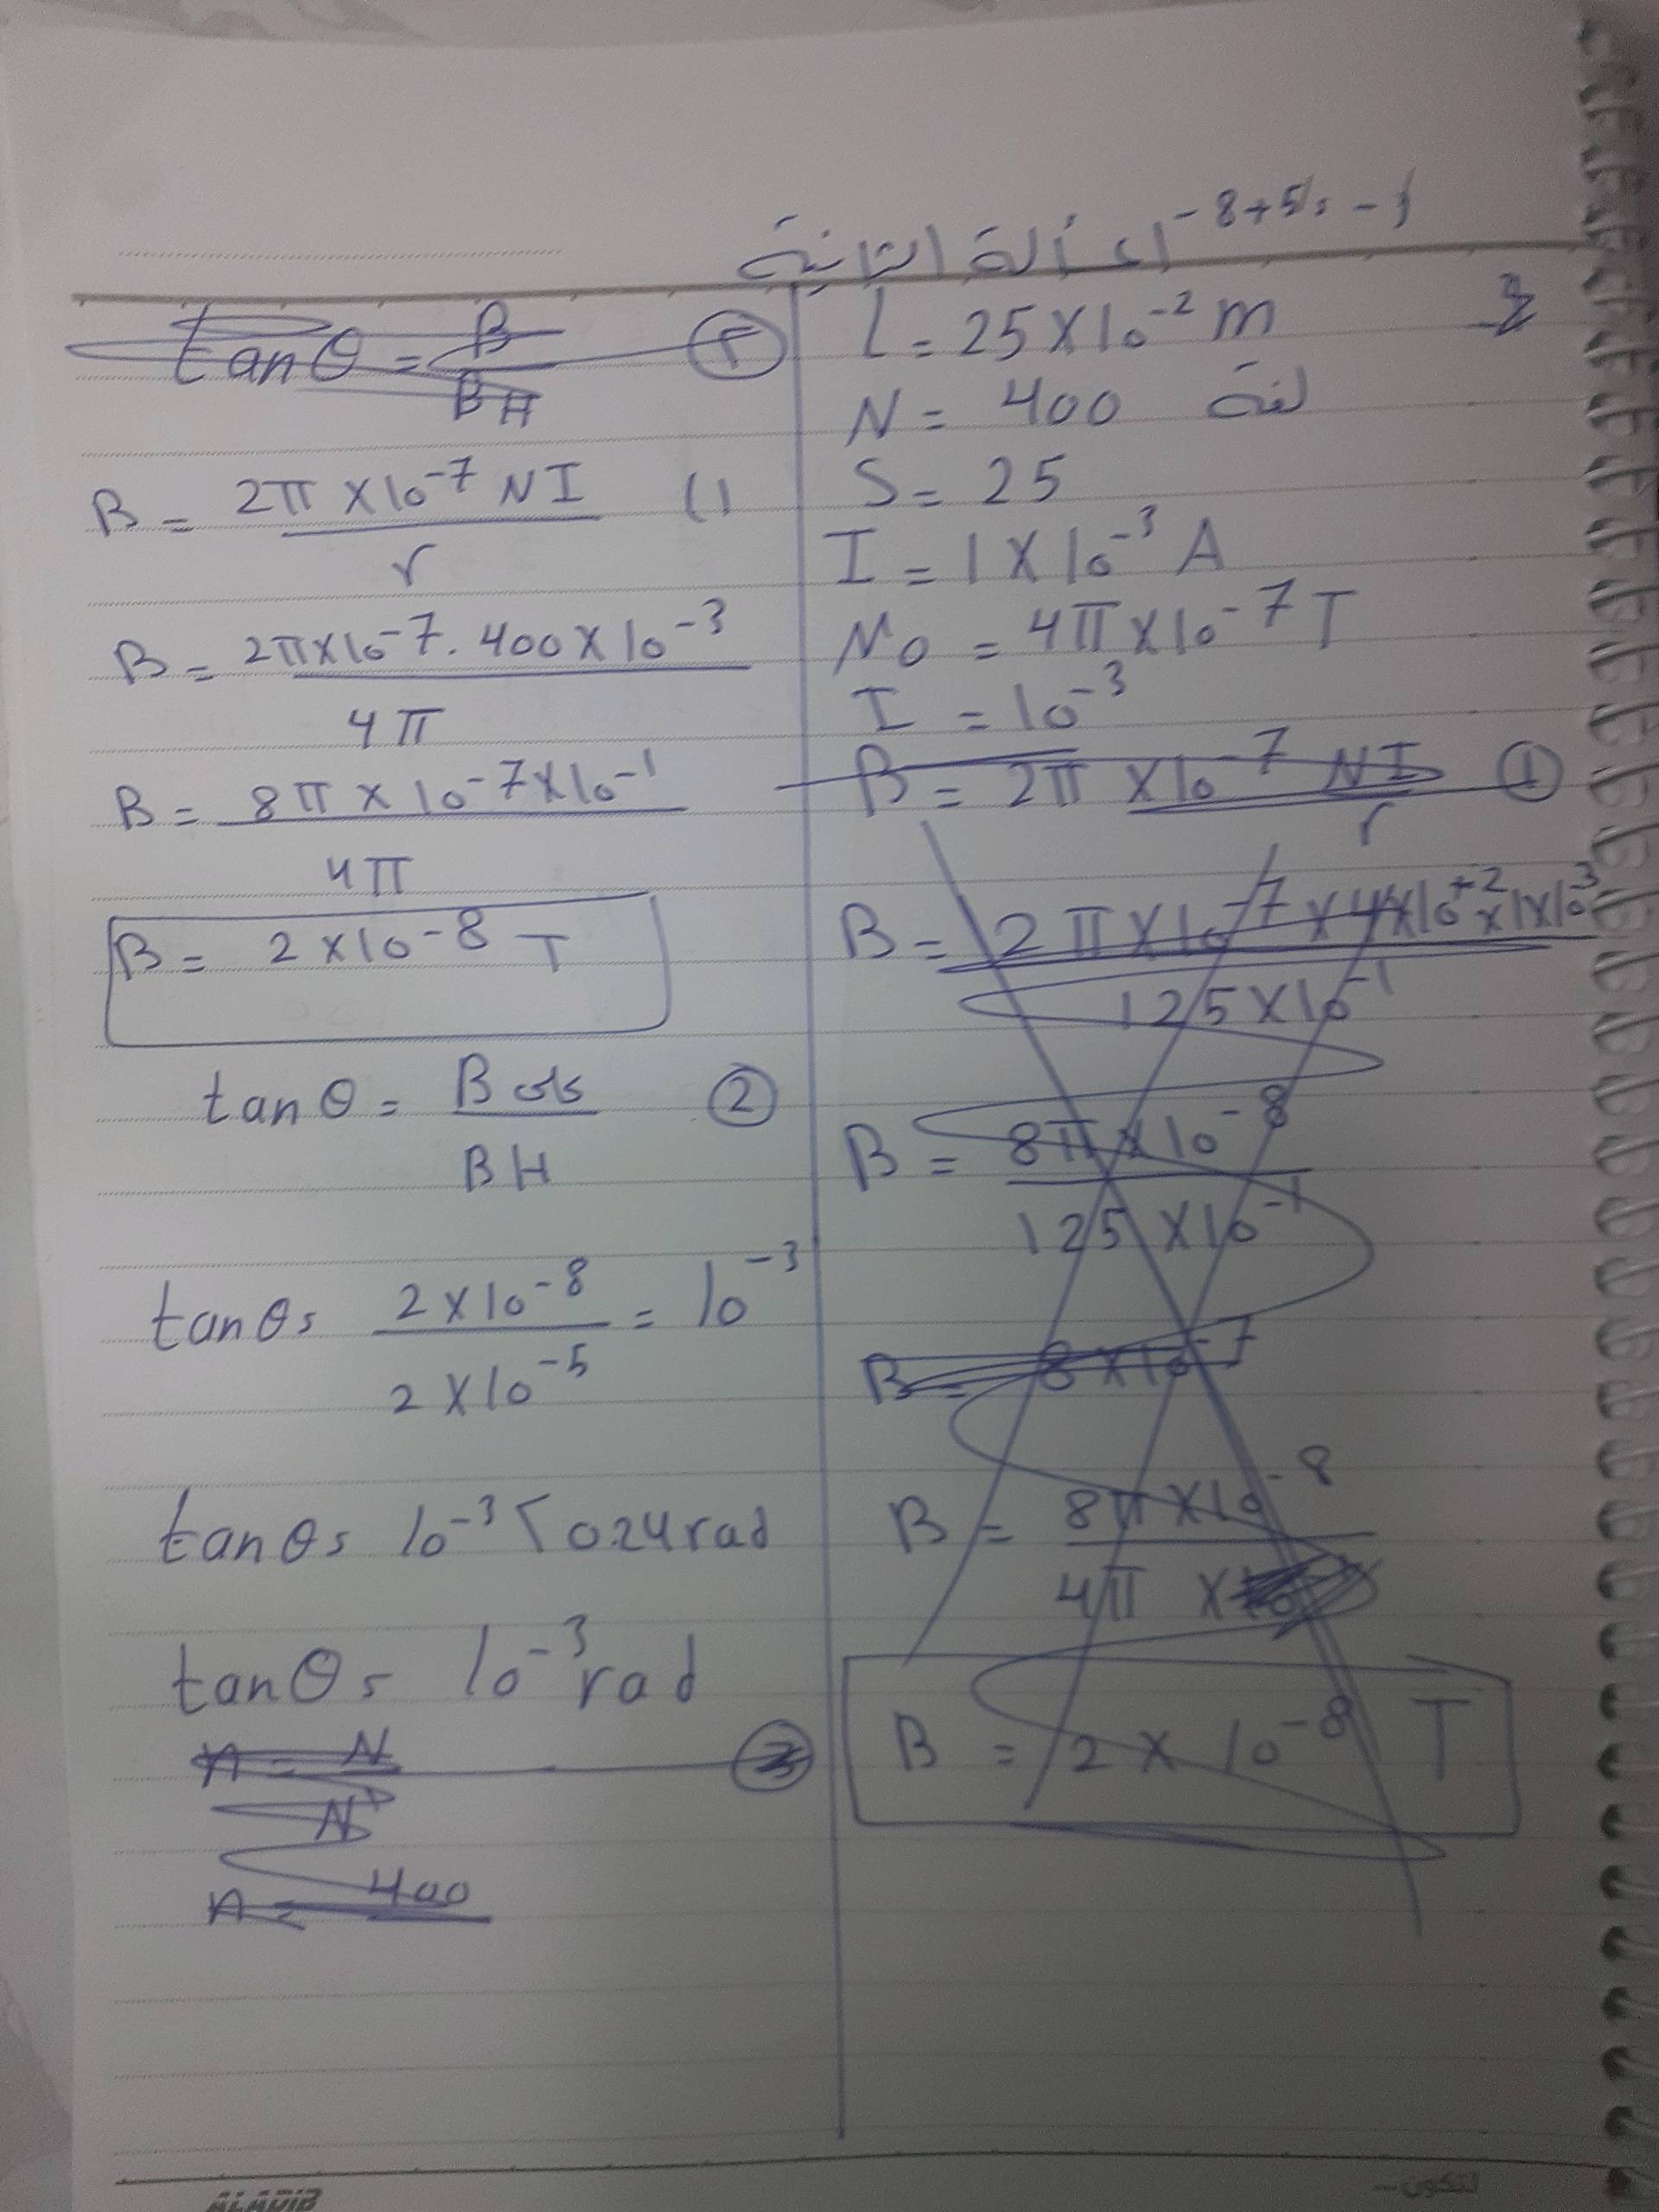 المسألة الثانية -8+5=-3
L = 25 X 10-2 m
N = 400 لفة
S = 25
I = 1 X 10-3 A
No = 4π X 10-7 T
I = 10-3
B = 2π X10-7 NI / r ①
B = 2π X10-7 X 4X10+2 X 1X10-3 / 125X10-1
B = 8π X10-8 / 125 X10-1
B = 8X10-7
B = 8π X10-8 / 4π X
B = 2 X 10-8 T
tanθ = B / BH
B = 2π X10-7 NI / r (1
B = 2πX10-7. 400 X 10-3 / 4π
B = 8π X 10-7 X 10-1 / 4π
B = 2 X10-8 T
tanθ = B / BH ②
tanθ = 2 X10-8 / 2 X10-5 = 10-3
tanθ = 10-3 < 0.24 rad
tanθ = 10-3 rad
n = N / N'
n = 400
ALADIB